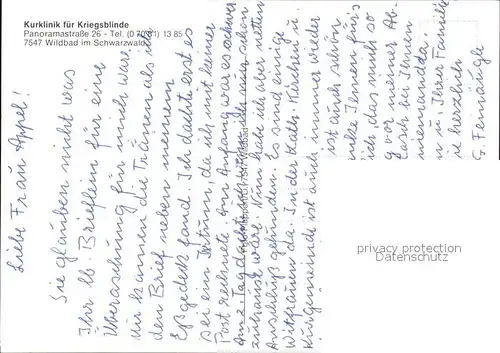 Kurklinik für Kriegsblinde
Panoramastraße 26 - Tel. (07081) 13 85
7547 Wildbad im Schwarzwald
Liebe Frau Appel!
Sie glauben nicht was
Ihr lb. Brieflein für eine
Überraschung für mich war,
mir kamen die Tränen als ich
den Brief neben meinem
Eßgedeck fand. Ich dachte erst es
sei ein Irrtum, da ich mit keiner
Post rechnete. Am Anfang war es schwer
am 2. Tag dachte ich wenn ich nur schon
zuhause wäre. Nun habe ich aber netten
Anschluß gefunden. Es sind einige
Witfrauen da. In der kath. Kirche u.
Kurgemeinde ist auch immer wieder
ist auch schön
Ihnen für's
ich, das mich so
g vor meiner Ab-
bei Ihnen
n u. Ihrer Familie
ie herzlich
privacy protection
by anndi@collect